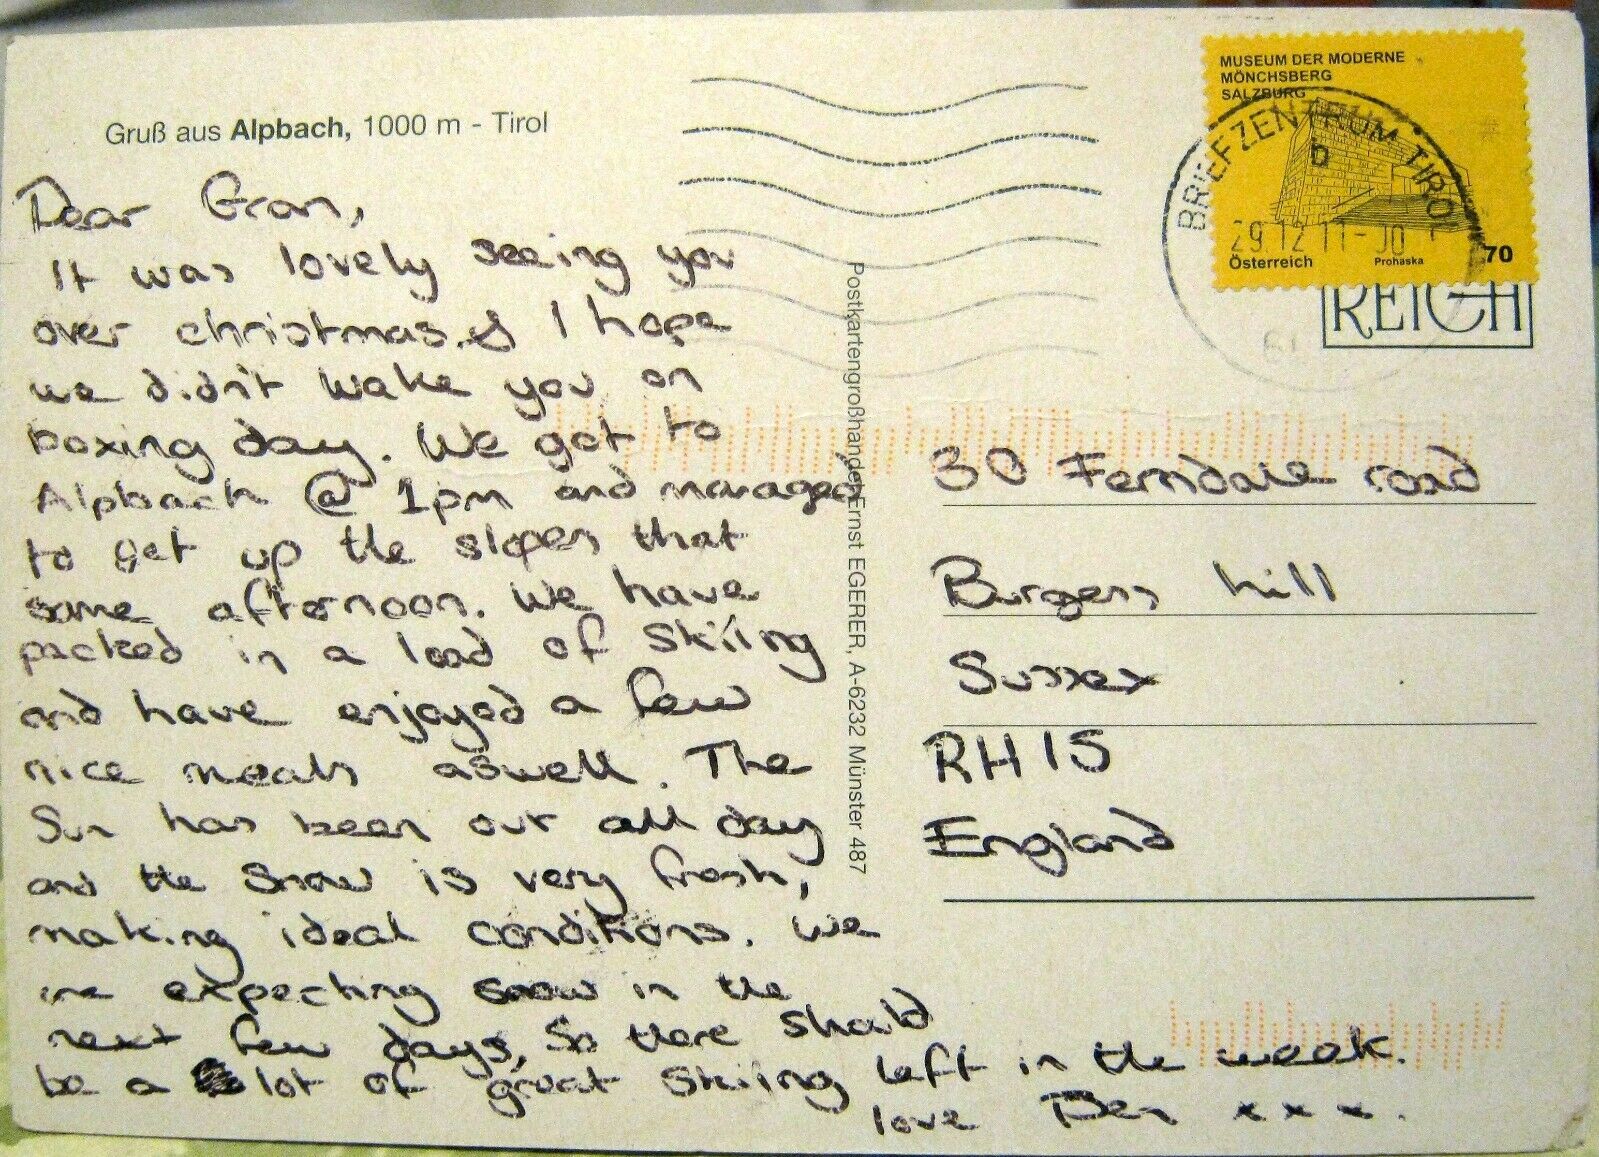 Gruß aus Alpbach, 1000 m - Tirol
Dear Gran,
It was lovely seeing you
over christmas. & I hope
we didn't wake you on
boxing day. We got to
Alpbach @ 1pm and managed
to get up the slopes that
same afternoon. We have
packed in a load of Skiing
and have enjoyed a few
nice meals aswell. The
Sun has been out all day
and the snow is very fresh,
making ideal conditions. We
are expecting snow in the
next few days, So there should
be a lot of great Skiing left in the week.
love Ben x x x.
Postkartengroßhandel Ernst EGERER, A-6232 Münster 487
MUSEUM DER MODERNE
MÖNCHSBERG
SALZBURG
Österreich
Prohaska
70
BRIEFZENTRUM TIROL
b
29.12.11-00
REICH
30 Ferndale road
Burgess hill
Sussex
RH15
England